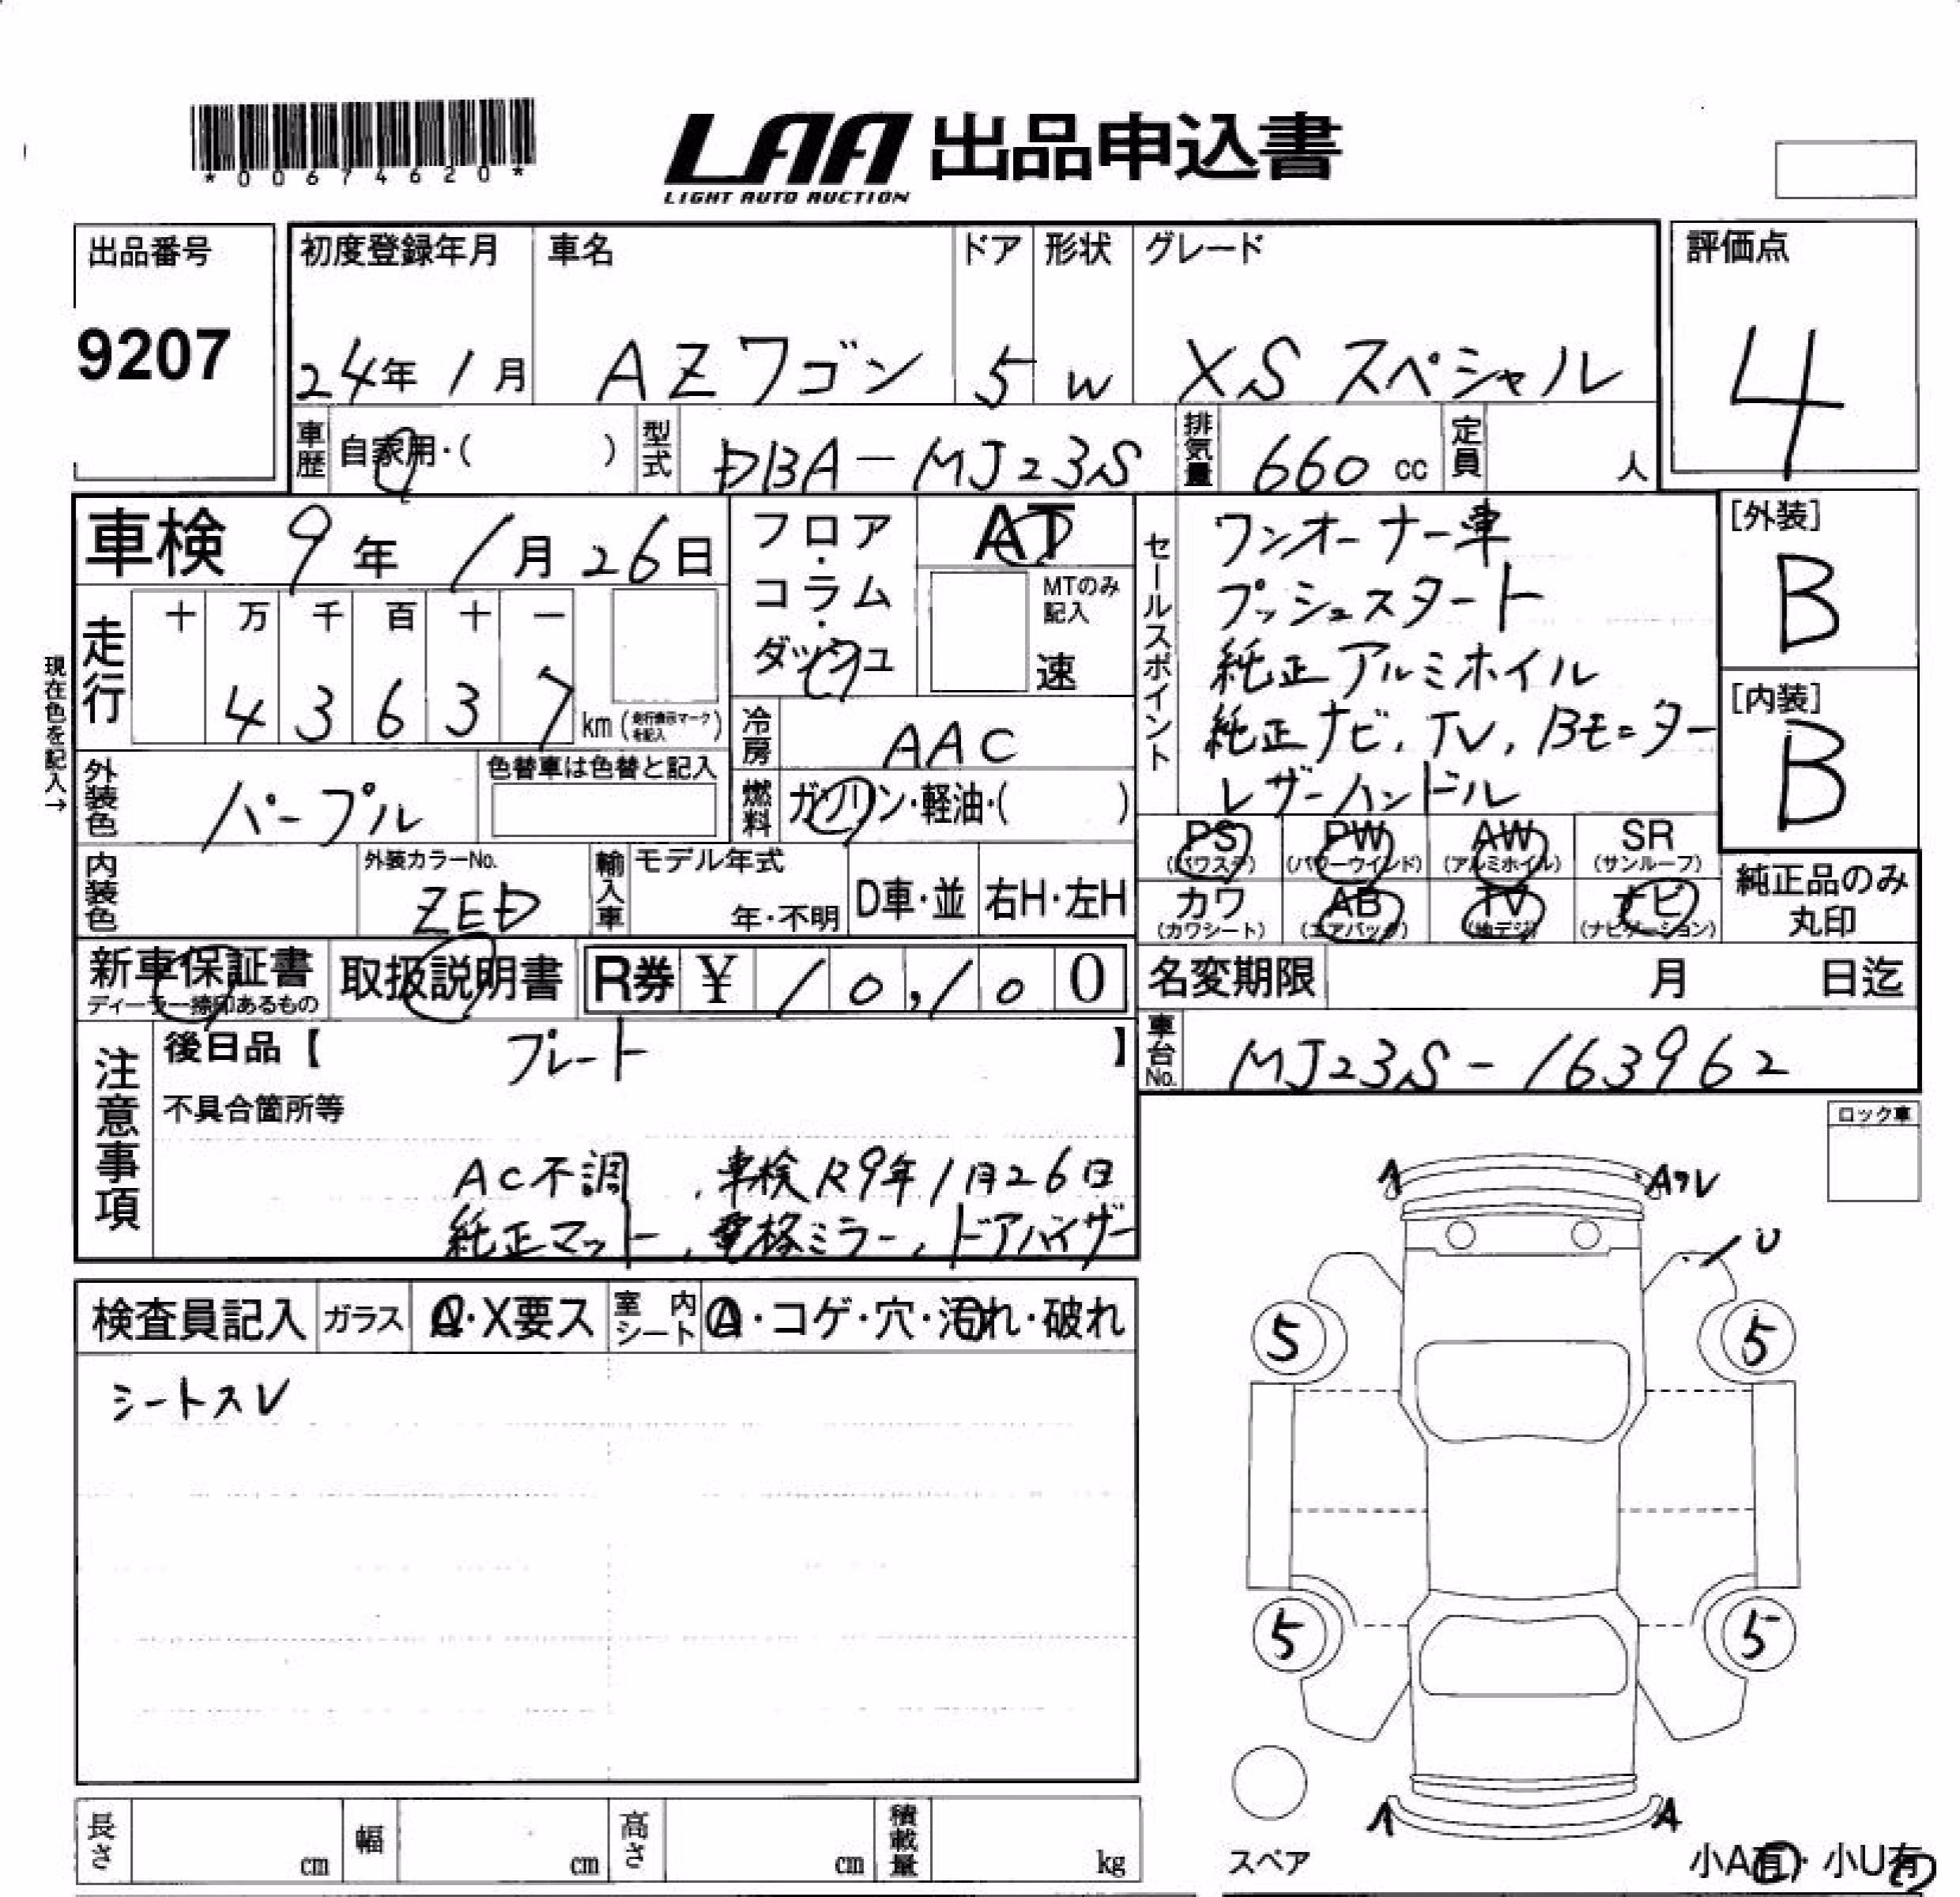 *00674620*
LAA 出品申込書
LIGHT AUTO AUCTION
出品番号
9207
初度登録年月 車名 ドア 形状 グレード
24年 1月 AZワゴン 5 W XSスペシャル
評価点
4
車歴 自家用・( ) 型式 DBA-MJ23S 排気量 660 cc 定員 人
車検 9年 1月 26日
フロア・コラム・ダッシュ
AT
MTのみ記入
速
セールスポイント
ワンオーナー車
プッシュスタート
純正アルミホイル
純正ナビ、TV、Bモニター
レザーハンドル
[外装]
B
[内装]
B
走行
十 万 千 百 十 一
4 3 6 3 7 km (走行表示マークを記入)
現在色を記入→
冷房 AAC
外装色 パープル
色替車は色替と記入
燃料 ガソリン・軽油・( )
PS (パワステ) PW (パワーウインド) AW (アルミホイル) SR (サンルーフ)
カワ (カワシート) AB (エアバック) TV (地デジ) ナビ (ナビゲーション)
純正品のみ丸印
内装色
外装カラーNo.
ZED
輸入車 モデル年式
年・不明 D車・並 右H・左H
新車保証書
ディーラー捺印あるもの
取扱説明書
R券 ¥ 10,100
名変期限 月 日迄
車台No. MJ23S-163962
注意事項
後日品【 プレート 】
不具合箇所等
AC不調 、車検R9年1月26日
純正マット、電格ミラー、ドアバイザー
ロック車
A
Aタレ
U
検査員記入 ガラス A・X要ス 室内シート A・コゲ・穴・汚れ・破れ
シートスレ
5 5
5 5
A A
スペア
小A有・小U有
長さ cm 幅 cm 高さ cm 積載量 kg